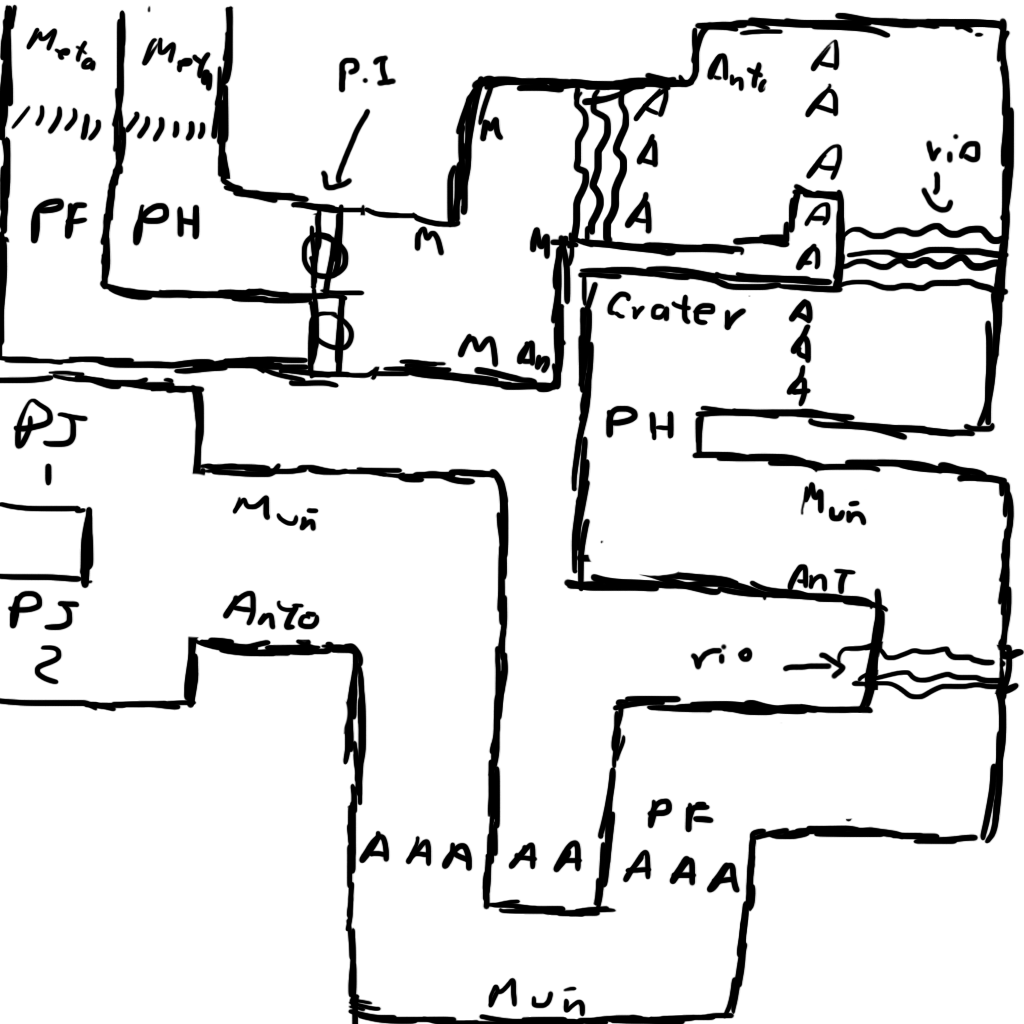 Meta Meta
P.I
PF PH
M
M
M
M An
Anto
A
A
A
A
A
A
A
A
rio
Crater
A
A
A
PH
PJ
1
Muñ
Muñ
PJ
2
Anto
AnT
rio
PF
A A A A A A A A
Muñ